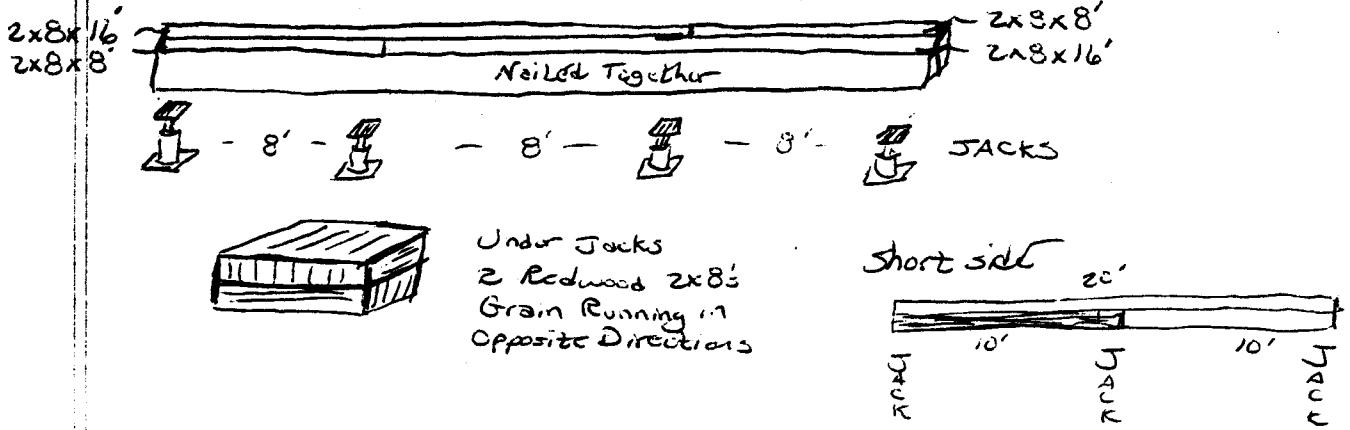 2x8x16' 2x8x8'
2x8x8' 2x8x16'
Nailed Together
- 8' - - 8' - - 8' - JACKS
Under Jacks
2 Redwood 2x8's
Grain Running in
Opposite Directions
Short side
20'
10' 10'
JACK JACK JACK